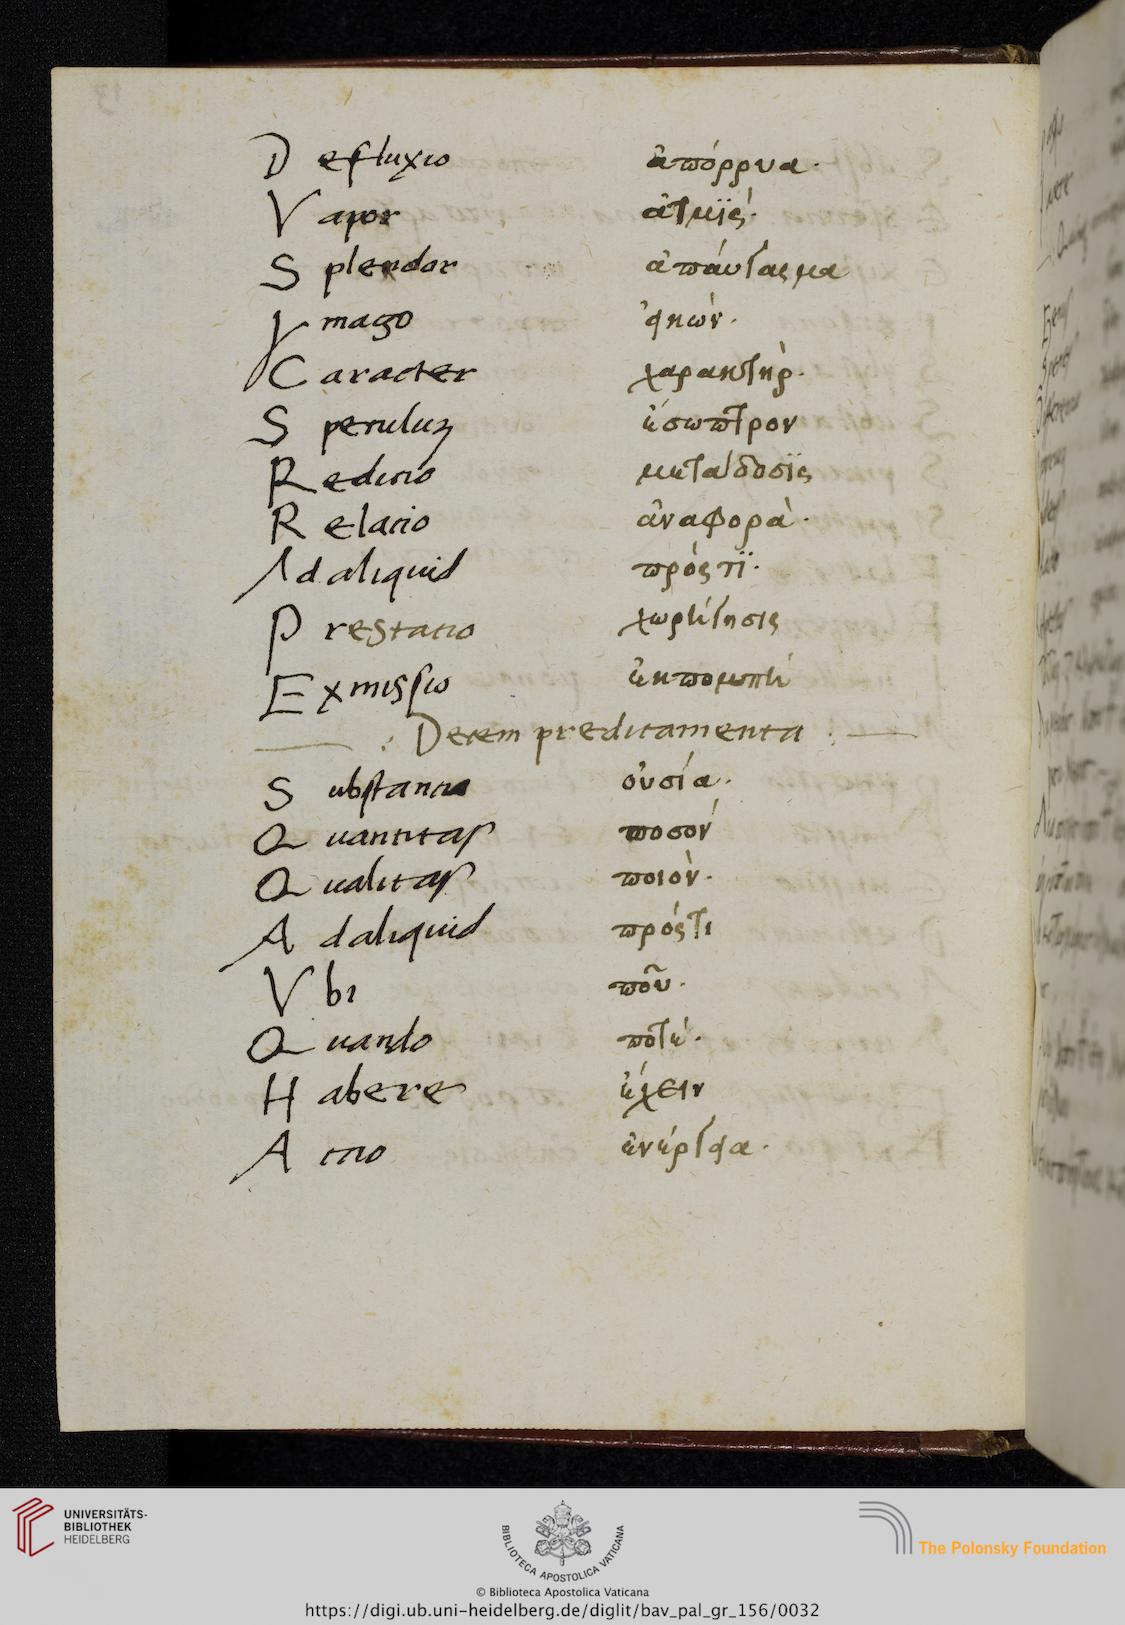 Defluxio ἀπόρρυα·
Vapor ἀτμϊς·
Splendor ἀπάυγασμα
ymago ἠκών·
Caracter χαρακτήρ·
Speculuz έσωπτρον
Redicio μεταδοσϊς
Relacio ἀναφορὰ·
Ad aliquid πρός τϊ·
Prestacio χωρίγησις
Exmissio ἐκπομπεί
Decem predicamenta
Substancia οὐσία·
Quantitas ποσόν
Qualitas ποιὸν·
Ad aliquid πρός τι
Vbi ποῦ·
Quando ποτέ·
Habere έχειν
Accio ἐνέργηα·
UNIVERSITÄTS-
BIBLIOTHEK
HEIDELBERG
BIBLIOTECA APOSTOLICA VATICANA
The Polonsky Foundation
© Biblioteca Apostolica Vaticana
https://digi.ub.uni-heidelberg.de/diglit/bav_pal_gr_156/0032